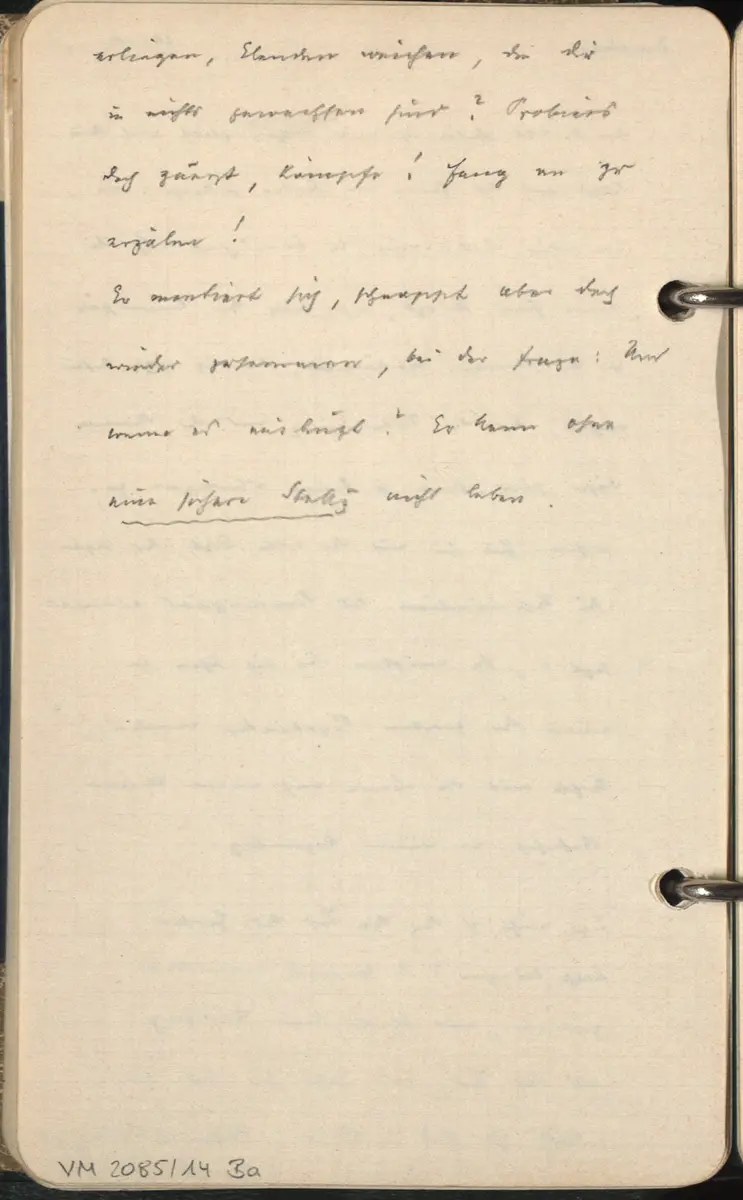 erliegen, Elenden weichen, die dir
in nichts gewachsen sind? Probiers
doch zuerst, kämpfe! Fang an zu
erzälen!
Er montiert sich, schnappt aber doch
wieder zusammen, bei der Frage: Und
wenn es misslingt? Er kann ohne
eine sichere Stellg nicht leben.
VM 2085/14 Ba